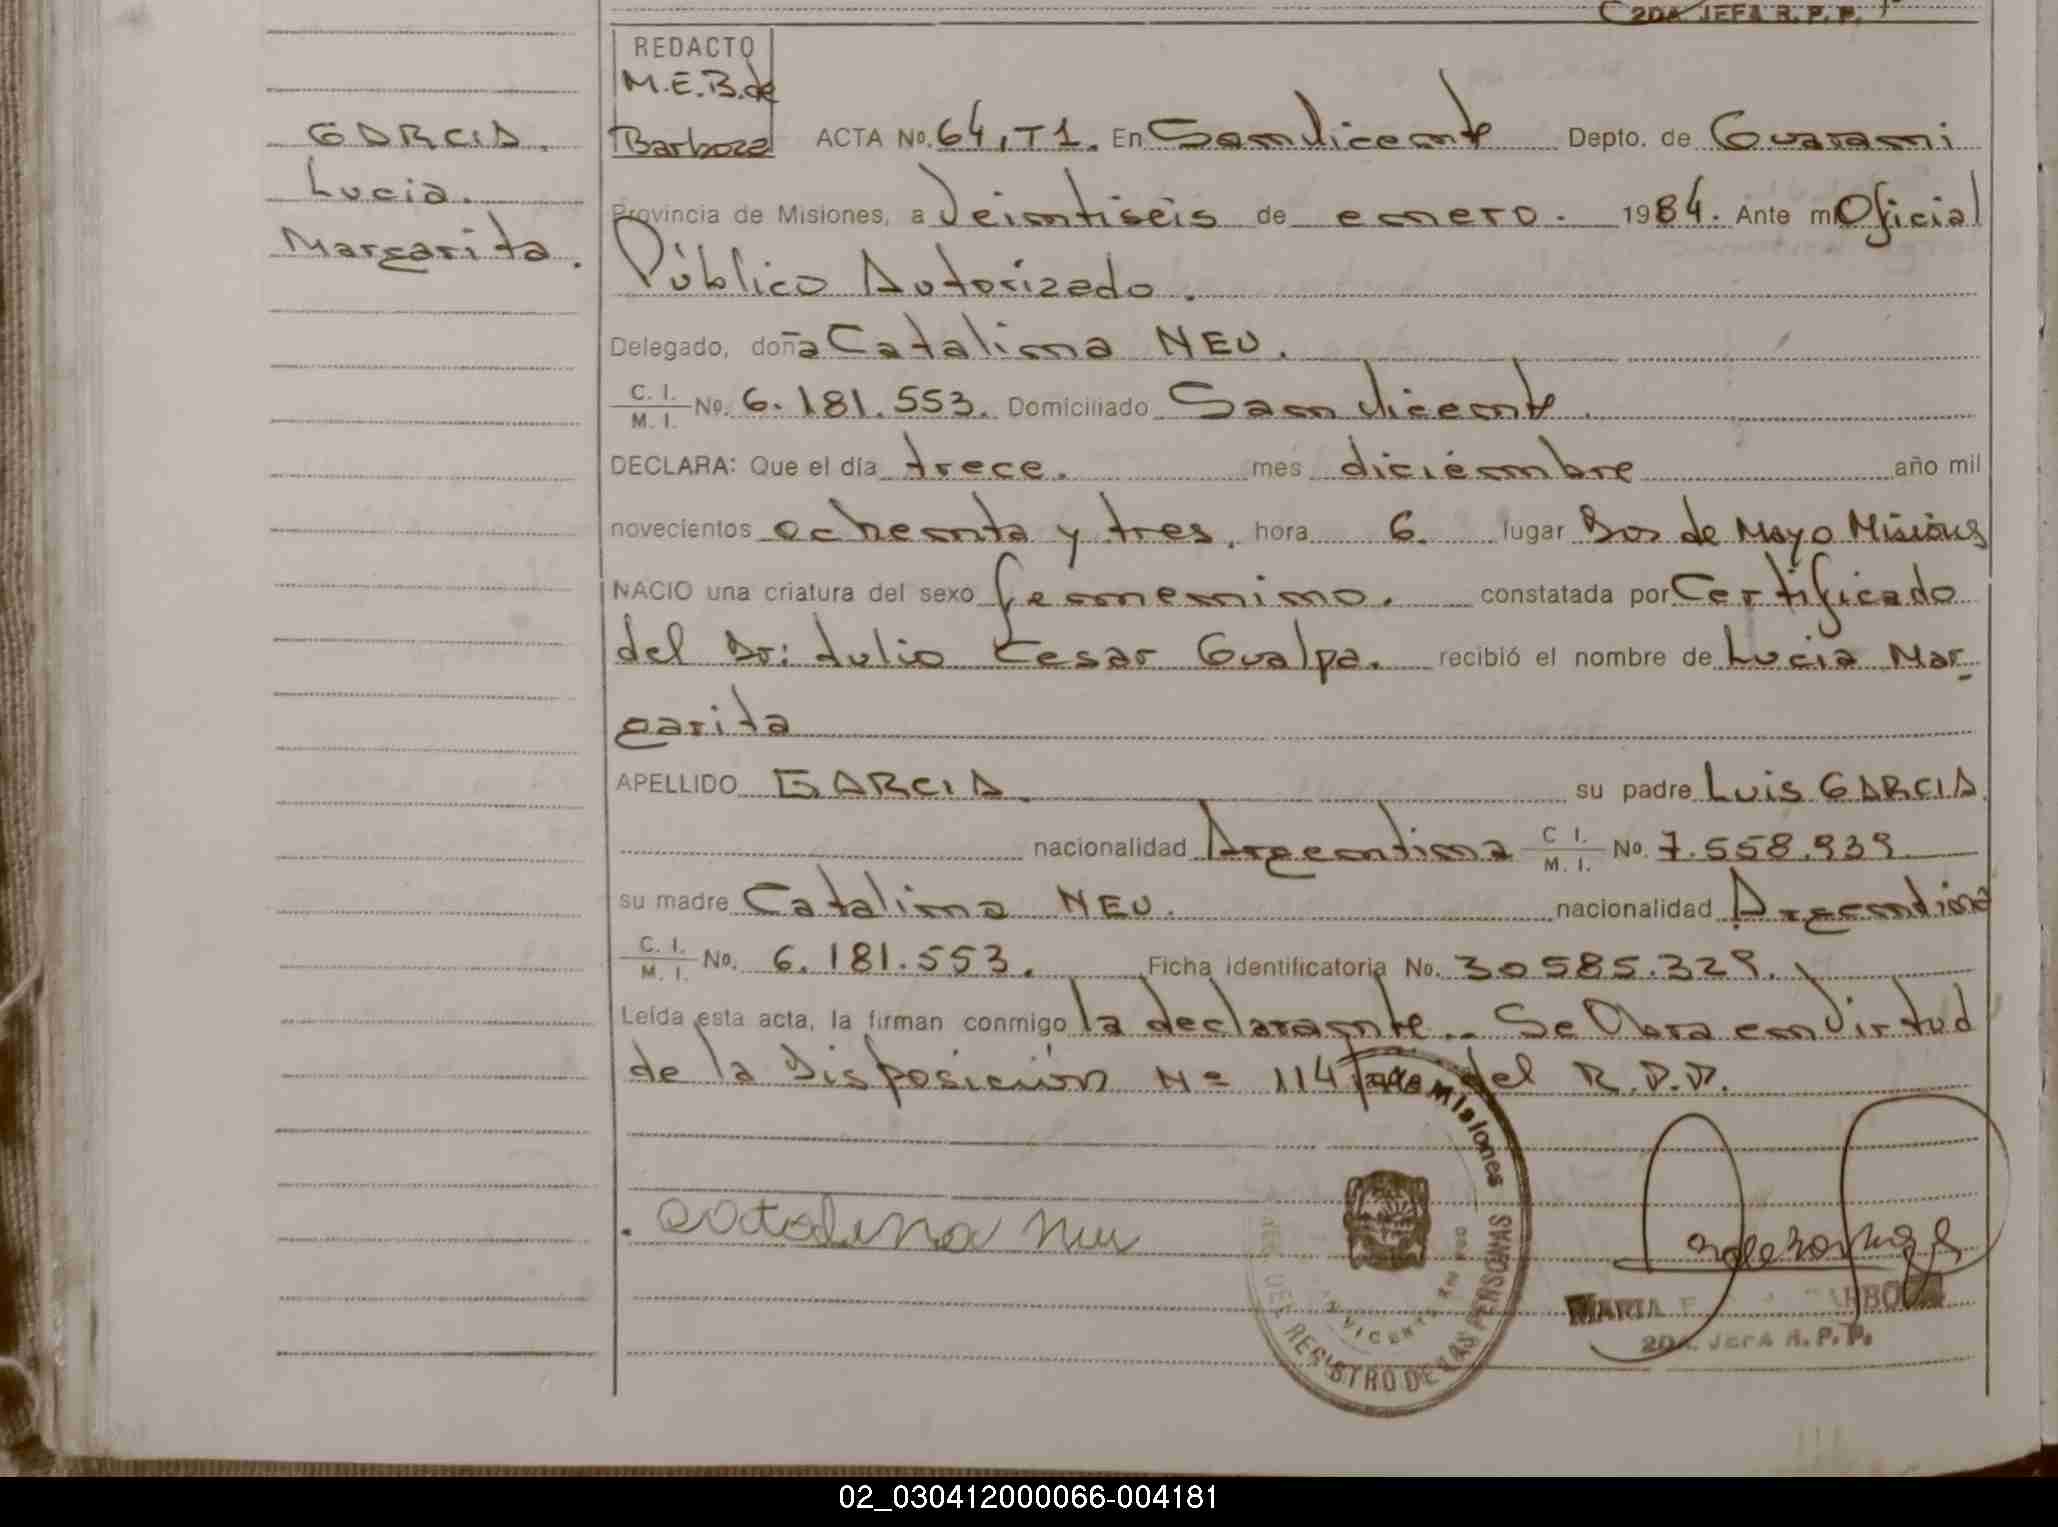 2DA. JEFA R. P. P.
REDACTO
M.E.B. de
Barboza
GARCIA.
Lucia.
Margarita.
ACTA No. 64, T1. En San Vicente Depto. de Guarani
Provincia de Misiones, a Veintiseis de enero. 1984. Ante mi Oficial
Público Autorizado.
Delegado, doña Catalina NEU.
C. I. / M. I. No. 6.181.553. Domiciliado San Vicente.
DECLARA: Que el día trece. mes diciembre año mil
novecientos ochenta y tres, hora 6. lugar Dos de Mayo Misiones
NACIO una criatura del sexo femenino. constatada por Certificado
del Dr: Julio Cesar Gualpa. recibió el nombre de Lucia Mar-
garita
APELLIDO GARCIA su padre Luis GARCIA.
nacionalidad Argentina C I. / M. I. No. 7.558.939
su madre Catalina NEU. nacionalidad Argentina
C. I. / M. I. No. 6.181.553. Ficha identificatoria No. 30585.329.
Leída esta acta, la firman conmigo la declarante.. Se Labra en Virtud
de la Disposición Nº 114 del R.P.P.
Misiones
DEL REGISTRO DE LAS PERSONAS
VICENTE
Catalina Neu
MARIA
2DA. JEFA R. P. P.
02_030412000066-004181